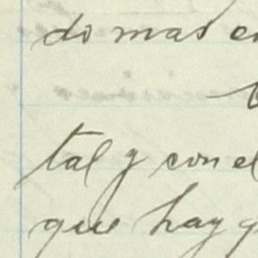 do mas en
tal y con el
que hay q